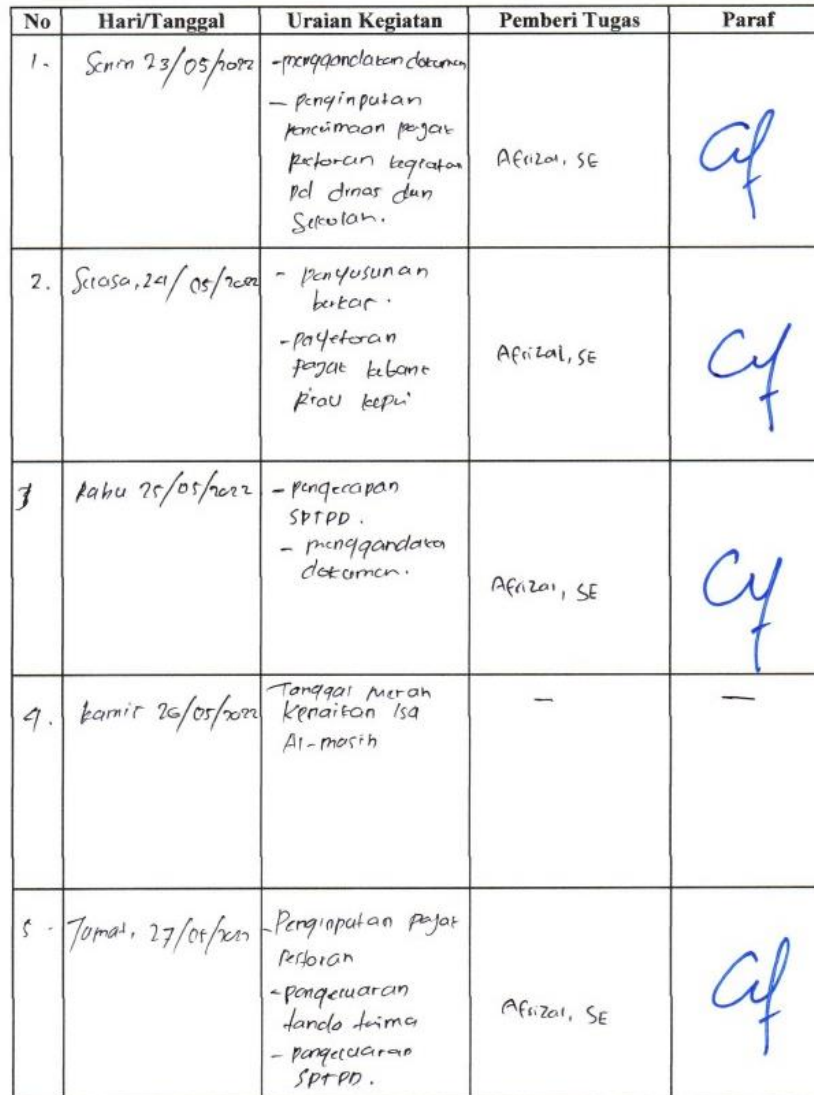 No Hari/Tanggal Uraian Kegiatan Pemberi Tugas Paraf
1. Senin 23/05/2022 - menggandakan dokumen
- penginputan
penerimaan pajak
restoran kegiatan
pd dinas dan
Sekolah.
Afrizal, SE
2. Selasa, 24/05/2022 - penyusunan
berkas.
- penyetoran
pajak ke bank
Riau kepri
Afrizal, SE
3 Rabu 25/05/2022 - pengecapan
SPTPD.
- menggandakan
dokumen.
Afrizal, SE
4. kamis 26/05/2022 Tanggal merah
Kenaikan Isa
Al-masih
- -
5. Jumat, 27/05/2022 - Penginputan pajak
restoran
- pengeluaran
tanda terima
- pengeluaran
SPTPD.
Afrizal, SE